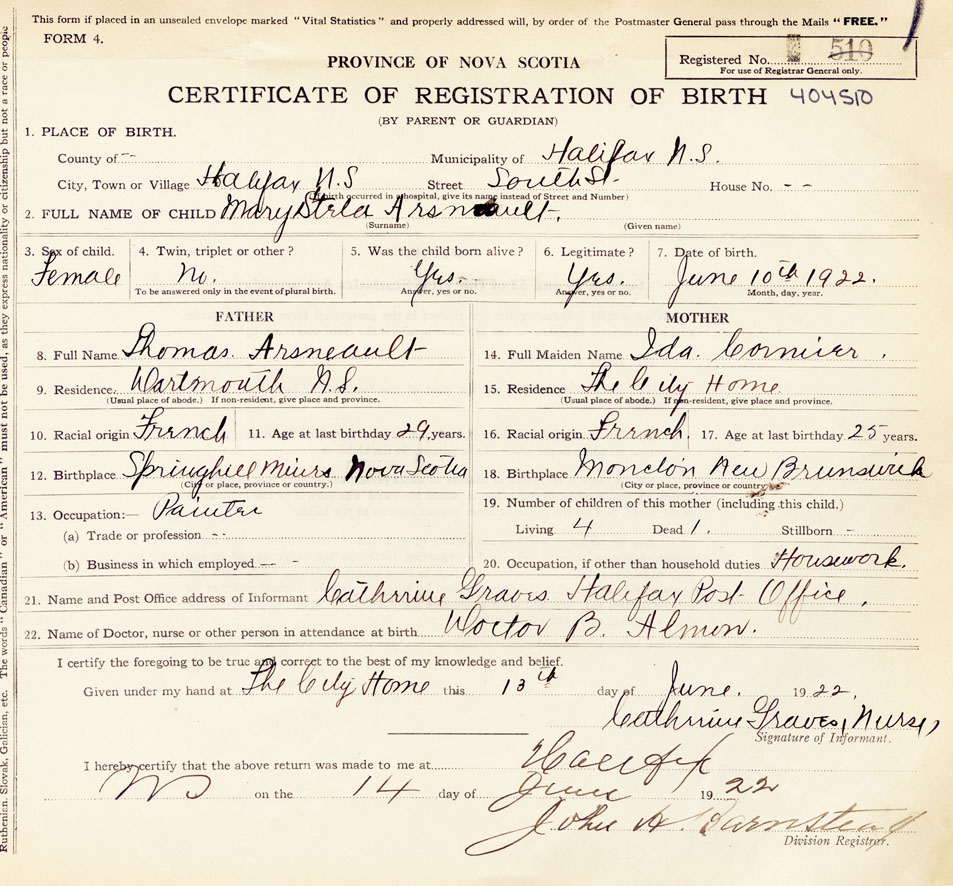 This form if placed in an unsealed envelope marked "Vital Statistics" and properly addressed will, by order of the Postmaster General pass through the Mails "FREE."
FORM 4.
Registered No. 510
For use of Registrar General only.
PROVINCE OF NOVA SCOTIA
CERTIFICATE OF REGISTRATION OF BIRTH 404510
(BY PARENT OR GUARDIAN)
1. PLACE OF BIRTH.
County of -- Municipality of Halifax N.S.
City, Town or Village Halifax N.S Street South St. House No. --
(If birth occurred in a hospital, give its name instead of Street and Number)
2. FULL NAME OF CHILD Mary Stela Arsneault.
(Surname) (Given name)
3. Sex of child. 4. Twin, triplet or other? 5. Was the child born alive? 6. Legitimate? 7. Date of birth.
Female No. Yes. Yes. June 10th 1922.
To be answered only in the event of plural birth. Answer, yes or no. Answer, yes or no. Month, day, year.
FATHER
8. Full Name Thomas. Arsneault
9. Residence. Dartmouth N.S.
(Usual place of abode.) If non-resident, give place and province.
10. Racial origin French 11. Age at last birthday 29, years.
12. Birthplace Springhill Mines Nova Scotia
(City or place, province or country.)
13. Occupation:— Painter
(a) Trade or profession --
(b) Business in which employed -- -
MOTHER
14. Full Maiden Name Ida. Cormier.
15. Residence The City Home
(Usual place of abode.) If non-resident, give place and province.
16. Racial origin French. 17. Age at last birthday 25 years.
18. Birthplace Moncton New Brunswick
(City or place, province or country.)
19. Number of children of this mother (including this child.)
Living 4 Dead 1. Stillborn -
20. Occupation, if other than household duties Housework.
21. Name and Post Office address of Informant Cathrine Graves Halifax Post Office,
22. Name of Doctor, nurse or other person in attendance at birth Doctor B. Almon.
I certify the foregoing to be true and correct to the best of my knowledge and belief.
Given under my hand at The City Home this 13th day of June. 1922,
Cathrine Graves, Nurse,
Signature of Informant.
I hereby certify that the above return was made to me at Halifax
NS on the 14 day of June 1922
John H. Barnstead
Division Registrar.
Ruthenian, Slovak, Galician, etc. The words "Canadian" or "American" must not be used, as they express nationality or citizenship but not a race or people